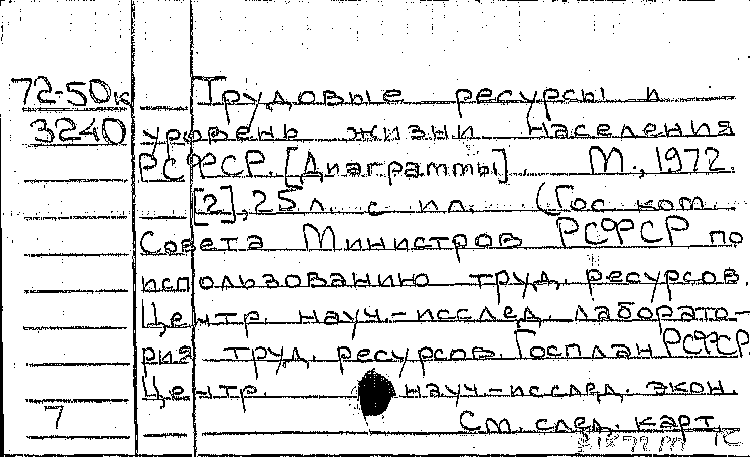 72-50к Трудовые ресурсы и
3240 уровень жизни населения
РСФСР. [Диаграммы]. М., 1972.
[2], 25 л. с ил. (Гос. ком.
Совета Министров РСФСР по
использованию труд. ресурсов.
Центр. науч.-исслед. лаборато-
рия труд. ресурсов. Госплан РСФСР
Центр. науч.-исслед. экон.
7 См. след. карт.